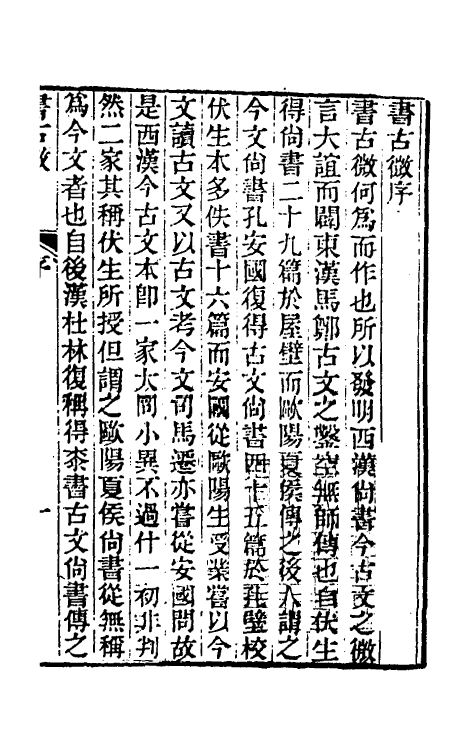 書古微序
書古微何爲而作也所以發明西漢尚書今古文之微
言大誼而闢東漢馬鄭古文之鑿空無師傳也自伏生
得尚書二十九篇於屋壁而歐陽夏侯傳之後人謂之
今文尚書孔安國復得古文尚書四十五篇於孔壁校
伏生本多佚書十六篇而安國從歐陽生受業嘗以今
文讀古文又以古文考今文司馬遷亦嘗從安國問故
是西漢今古文本卽一家大同小異不過什一初非判
然二家其稱伏生所授但謂之歐陽夏侯尚書從無稱
爲今文者也自後漢杜林復稱得桼書古文尚書傳之
書古微
序
一